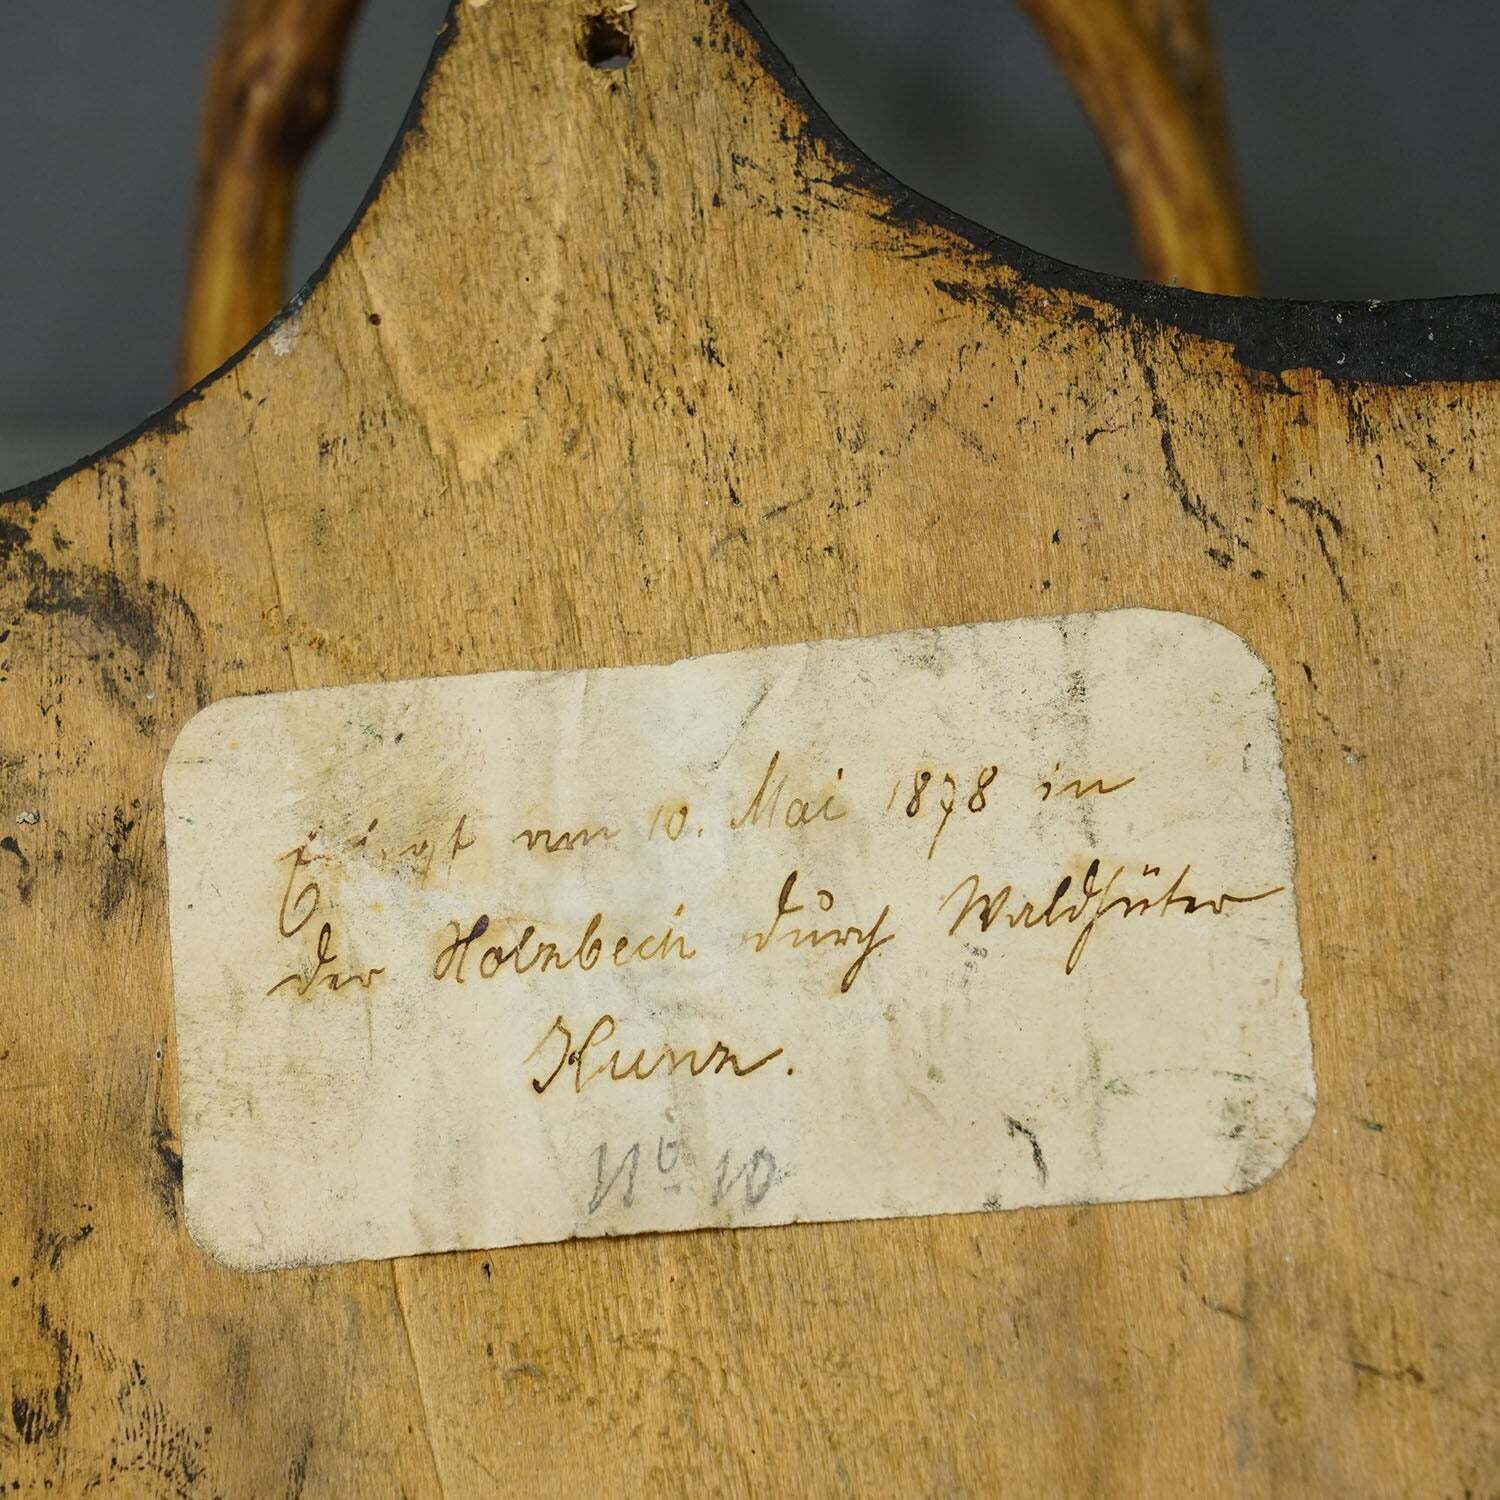 Erlegt am 10. Mai 1878 in
der Holzbeck durch Waldhüter
Kunz.
No 10